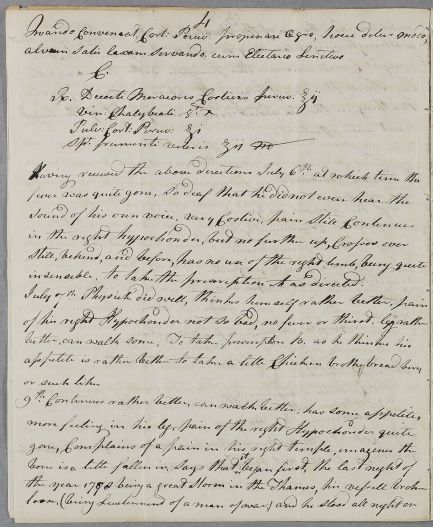 4
Quando Conveneat, Cort. Peruv. propinare Ægro, hocce detur modo,
alvum satis laxam servando, cum Electario Lenitivo
C.
℞. Decocti Corticis Peruv: ℥ ij
Vin: Chalybeati
Pulv: Cort. Peruv: ʒ i
Spt. frumenti veteris ℥ ij
Having received the above directions July 6th. at which time the
fever was quite gone, So deaf that he did not even hear the
Sound of his own voice, very Costive, pain Still Continues
in the right hypochonder, but no further up, Crosses over
Still, behind, and before, has no use of the right limb, being quite
insensible, to take the prescription A as directed.
July 7th. Physick did well, thinks himself rather better, pain
of his right Hypochonder not So bad, no fever or thirst, leg rather
better, can walk some, To take prescription B. as he thinks his
appetite is rather better to take a little Chicken broth, bread berry
or such like
9th. Continues rather better, can walk better, has some appetite,
more feeling in his leg, pain of the right Hypochonder quite
gone, Complains of a pain in his right temple, imagines the
bone is a little fallen in, Says that it began first, the last night of
the year being a great Storm in the Thames, his vessell broke
loose, (being Lieutenant of a man of war) and he stood all night on